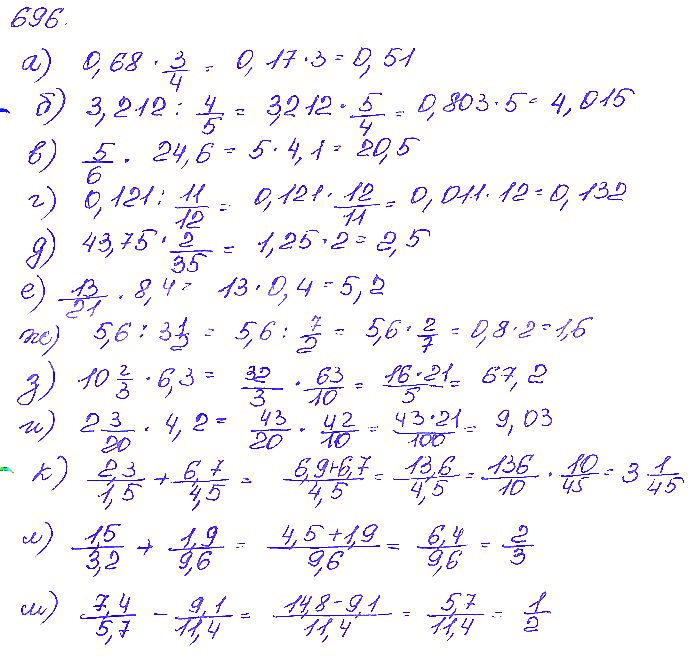 696.
а) 0,68 · 3/4 = 0,17·3 = 0,51
б) 3,212 : 4/5 = 3,212 · 5/4 = 0,803·5 = 4,015
в) 5/6 · 24,6 = 5·4,1 = 20,5
г) 0,121 : 11/12 = 0,121 · 12/11 = 0,011·12 = 0,132
д) 43,75 · 2/35 = 1,25·2 = 2,5
е) 13/21 · 8,4 = 13·0,4 = 5,2
ж) 5,6 : 3 1/2 = 5,6 : 7/2 = 5,6 · 2/7 = 0,8·2 = 1,6
з) 10 2/3 · 6,3 = 32/3 · 63/10 = 16·21/5 = 67,2
и) 2 3/20 · 4,2 = 43/20 · 42/10 = 43·21/100 = 9,03
к) 2,3/1,5 + 6,7/4,5 = 6,9+6,7/4,5 = 13,6/4,5 = 136/10 · 10/45 = 3 1/45
л) 1,5/3,2 + 1,9/9,6 = 4,5+1,9/9,6 = 6,4/9,6 = 2/3
м) 7,4/5,7 - 9,1/11,4 = 14,8-9,1/11,4 = 5,7/11,4 = 1/2